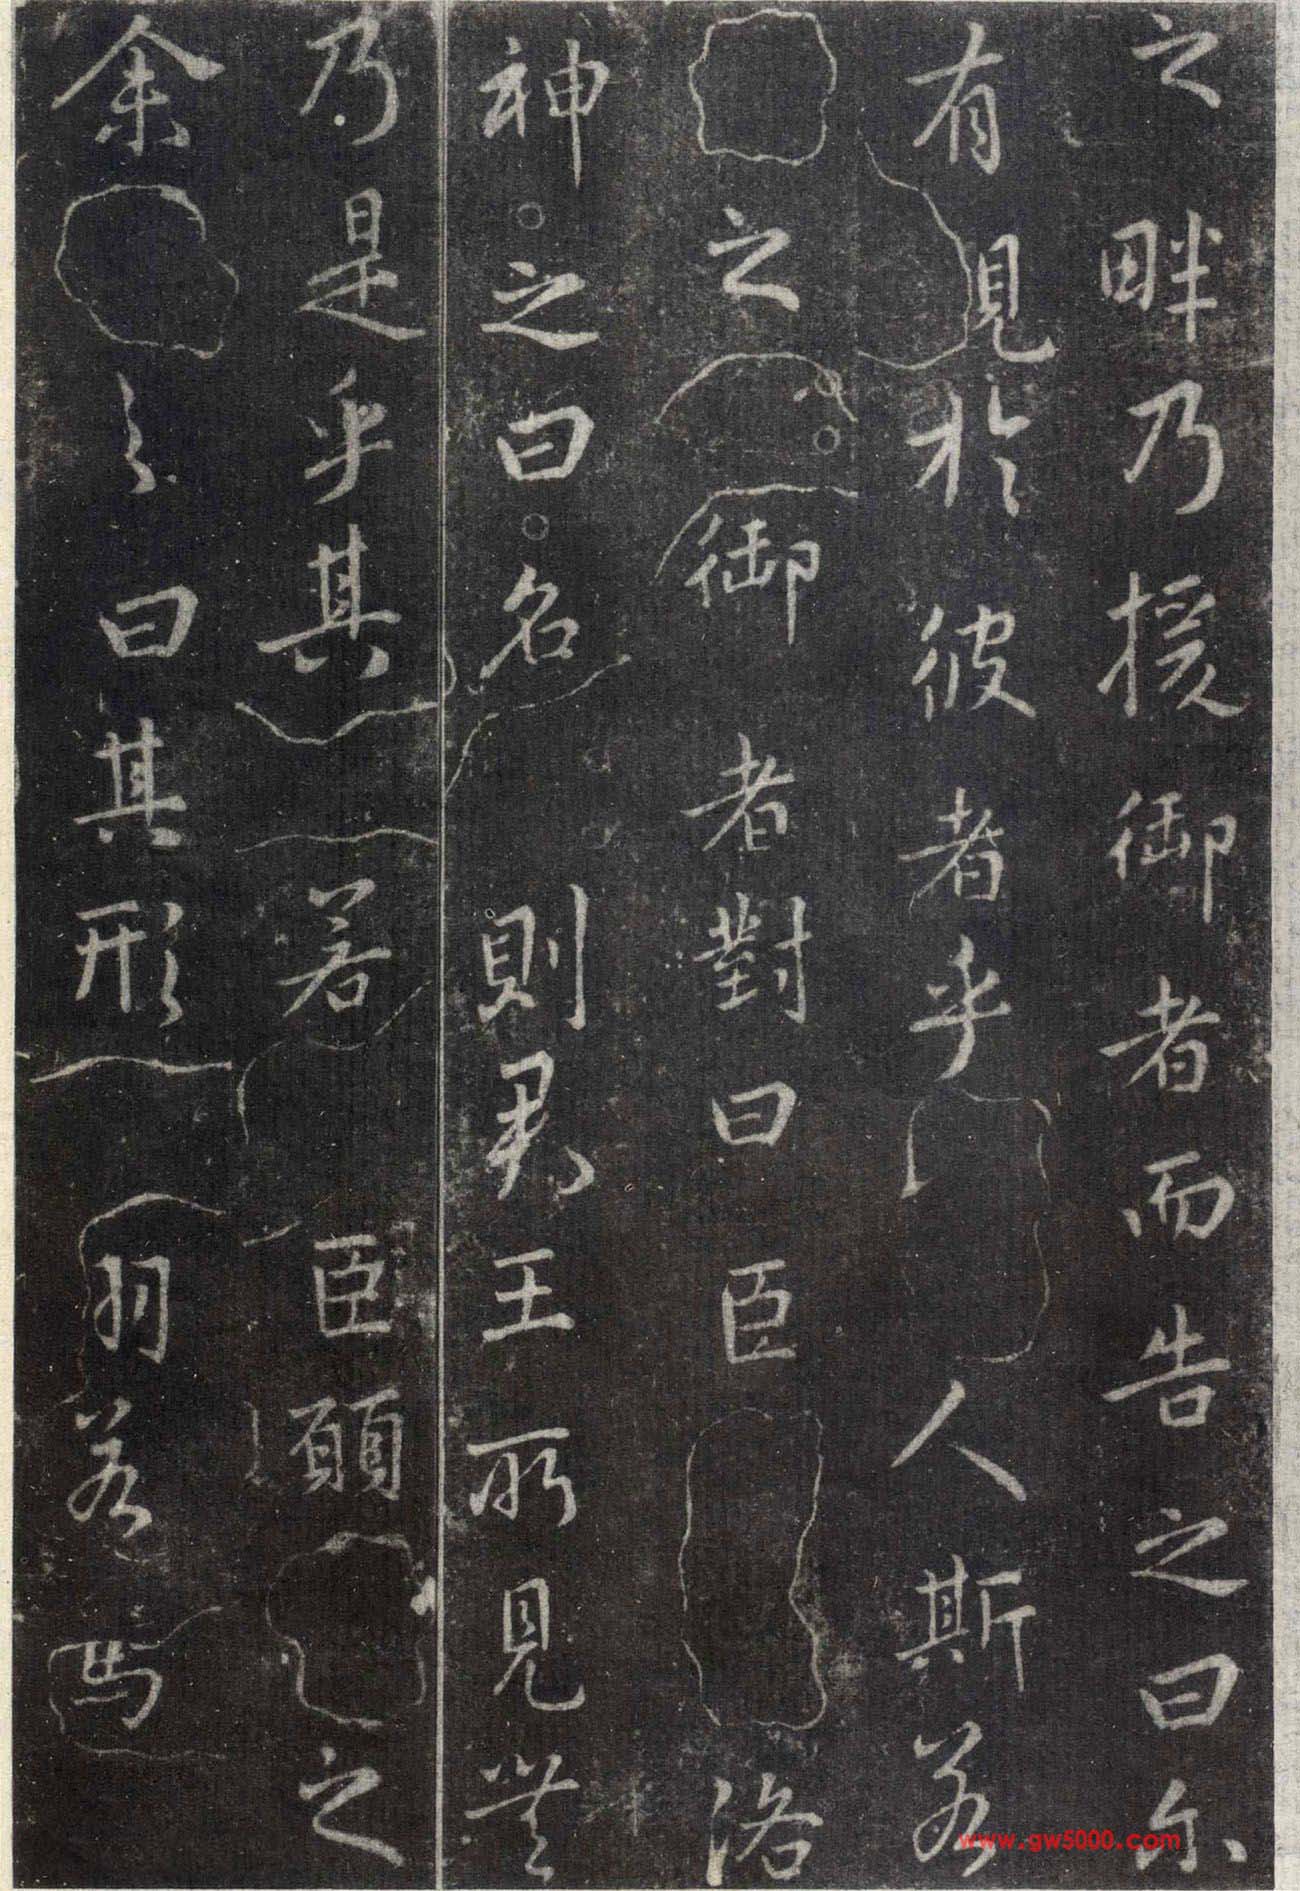 之畔乃援御者而告之曰尔
有見於彼者乎人斯若
之御者對曰臣洛
神之曰名則君王所見無
乃是乎其若臣願之
余之曰其形羽若焉
www.gw5000.com